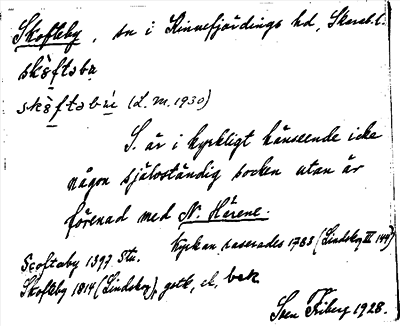 Skofteby, sn i Kinnefjärdings hd, Skarab.l.
skȯ̀ftəbʏ
skȯ̀ftəbʏ̀ (L.m. 1930)
S. är i kyrkligt hänseende icke
någon självständig socken utan är
förenad med N. Härene.
Kyrkan raserades 1783 (Lindskog III 144)
Scoftaby 1397 Stu.
Skofteby 1814 (Lindskog),
Sven Friberg 1928.